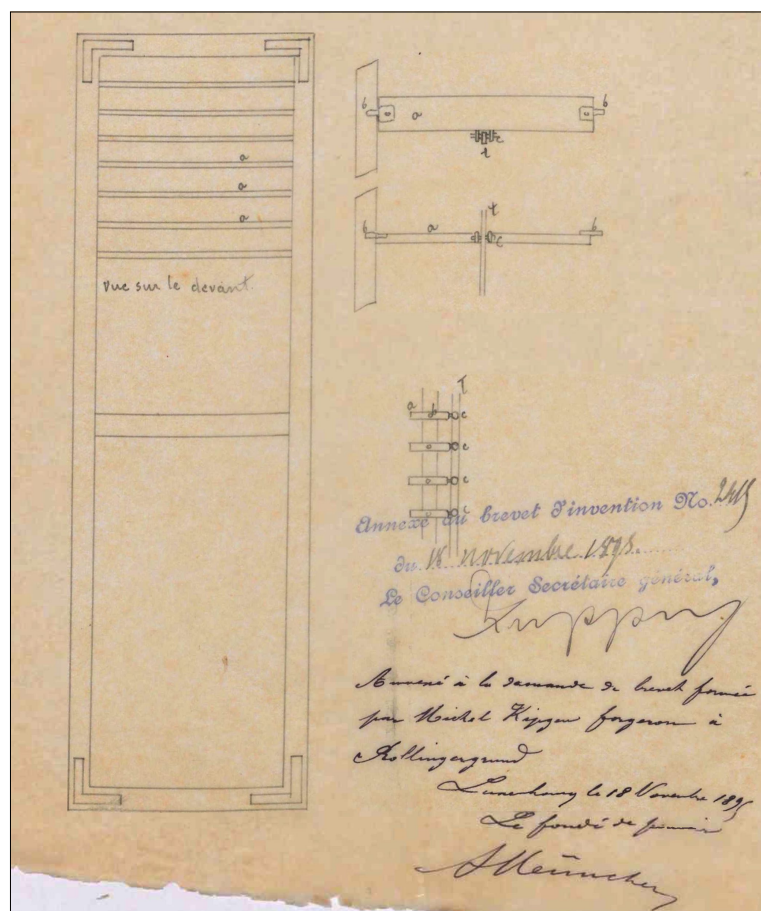 a
a
a
vue sur le devant.
b
a
b
c
t
t
b
a
b
c
T
a
b
c
c
c
c
Annexe au brevet d'invention No. 2415
du 18 novembre 1895.
Le Conseiller Secrétaire général,
Annexé à la demande de brevet formée
par Michel Kipgen forgeron à
Rollingergrund
Luxembourg le 18 Novembre 1895
Le fondé de pouvoir